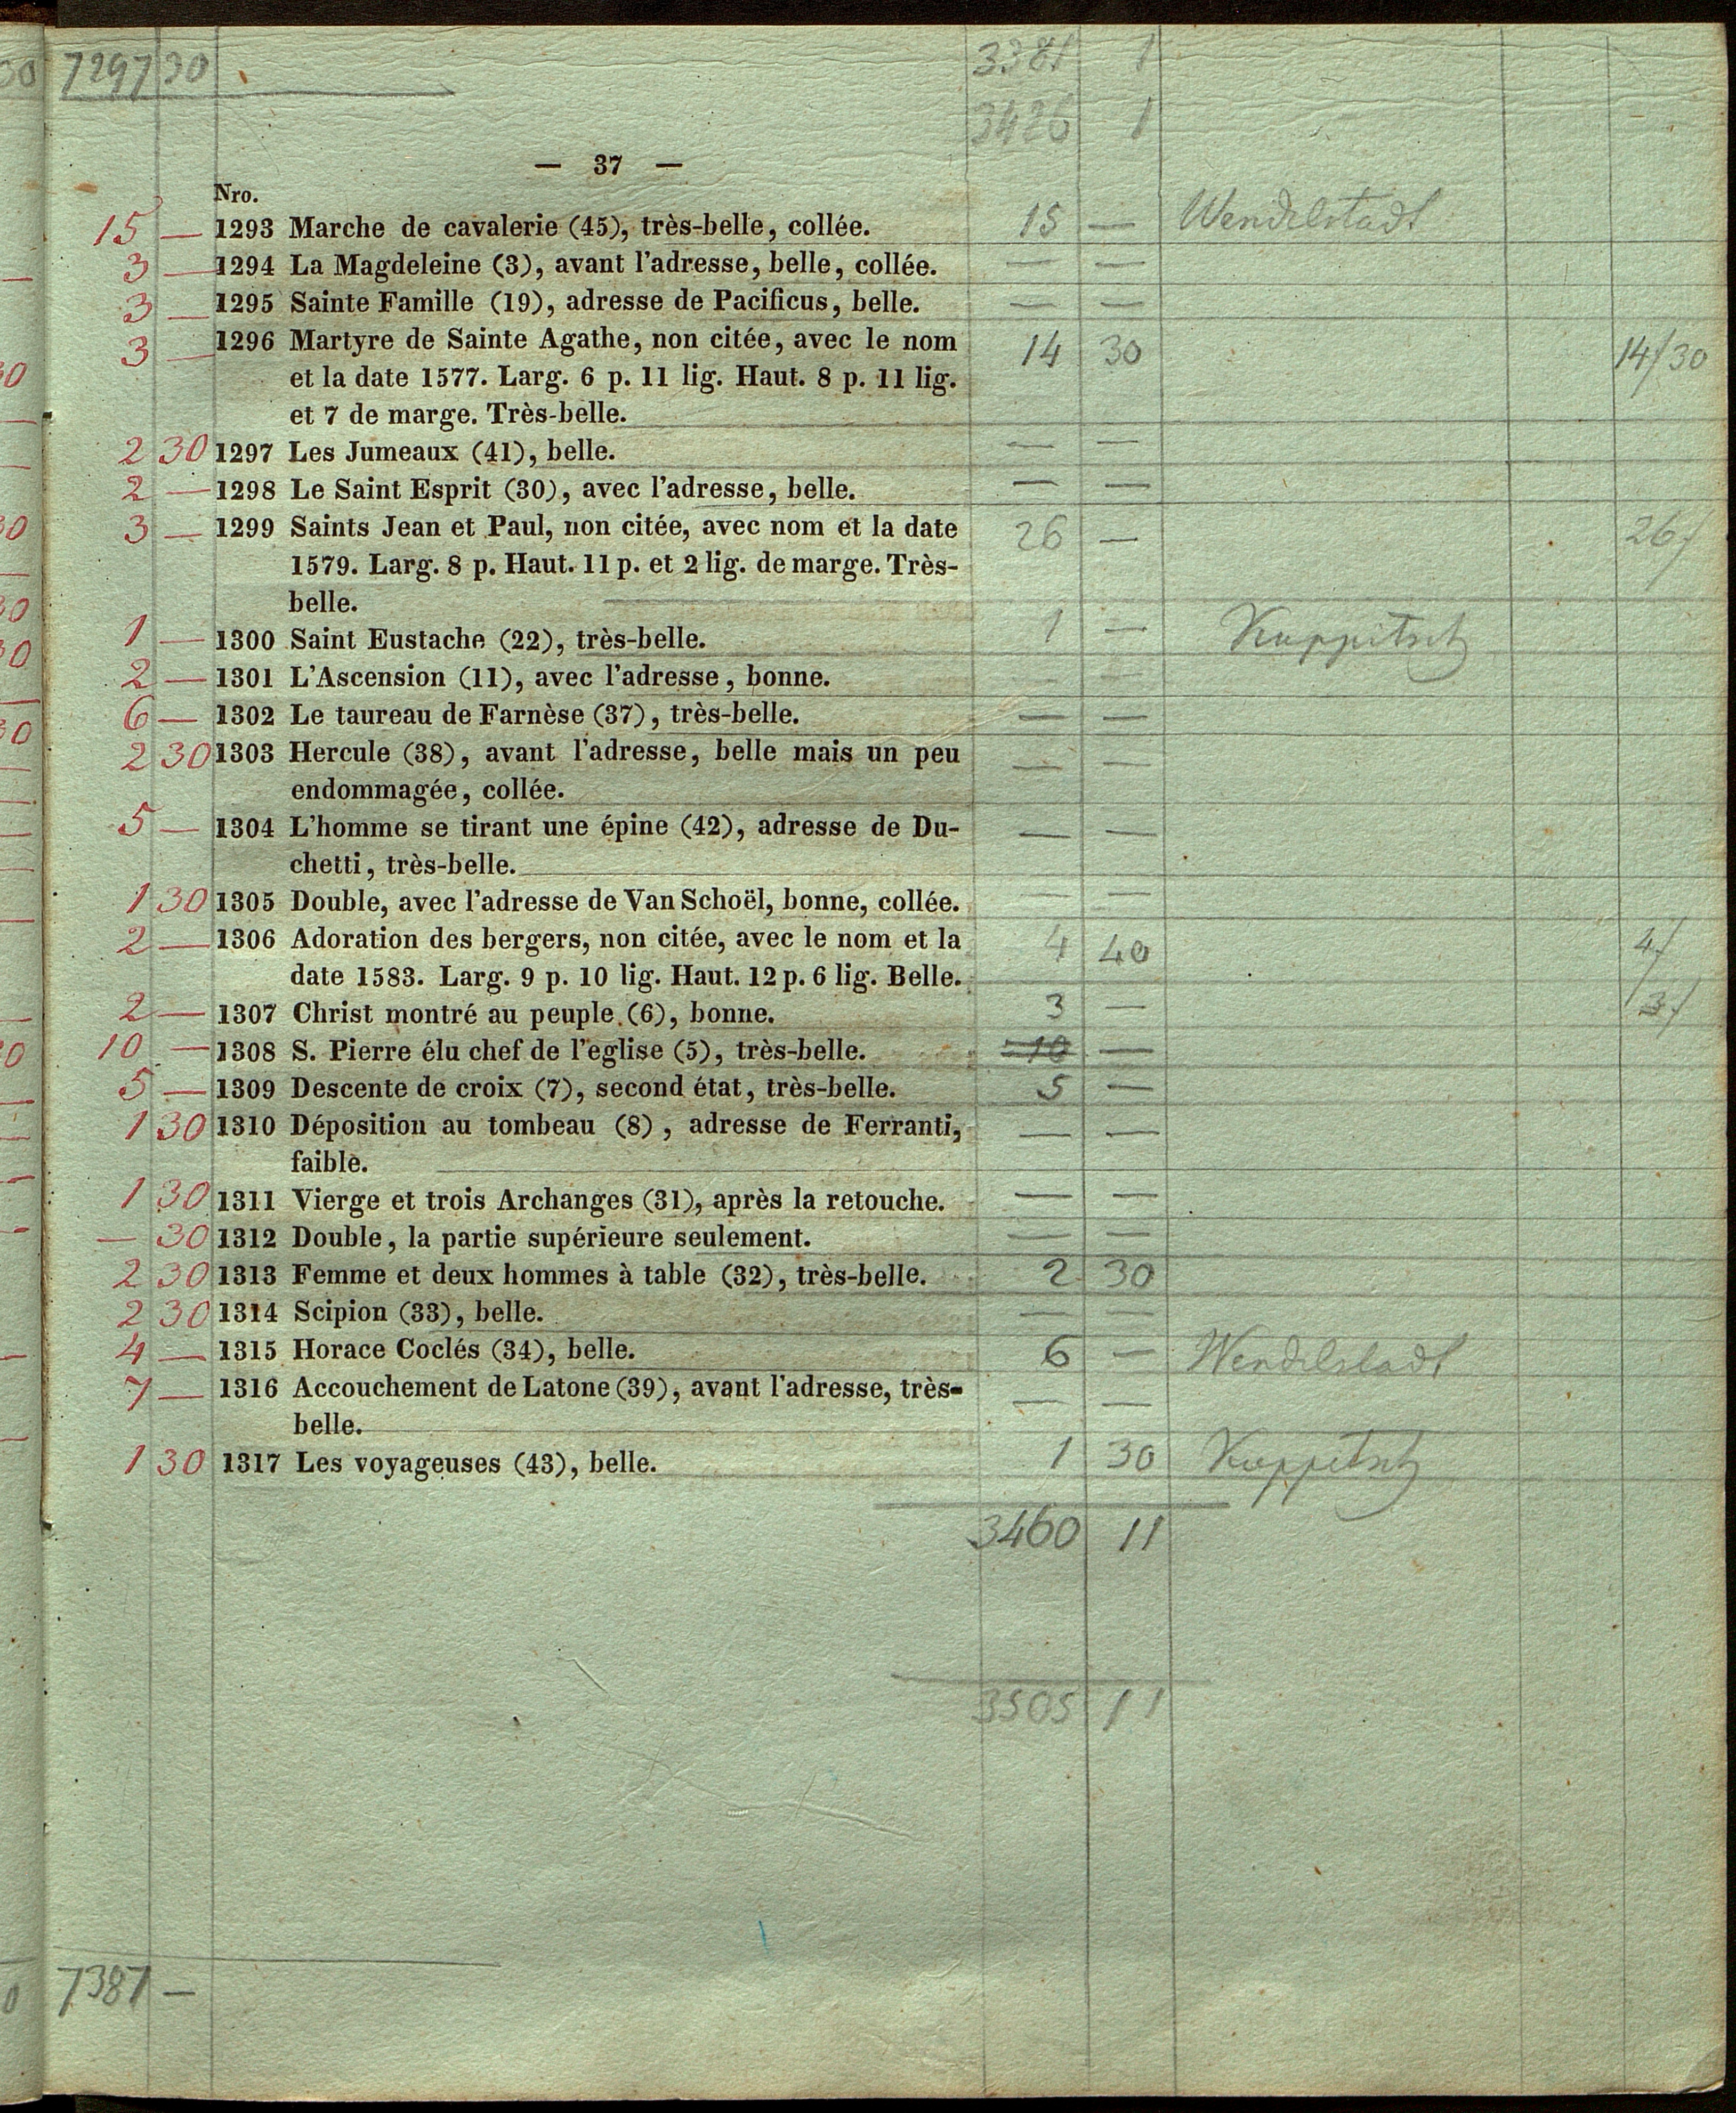 7297 30 3381 1
3426 1
— 37 —
Nro.
15 — 1293 Marche de cavalerie (45), très-belle, collée. 15 — Wendelstadt
3 — 1294 La Magdeleine (3), avant l'adresse, belle, collée. — —
3 — 1295 Sainte Famille (19), adresse de Pacificus, belle. — —
3 — 1296 Martyre de Sainte Agathe, non citée, avec le nom 14 30 14/30
et la date 1577. Larg. 6 p. 11 lig. Haut. 8 p. 11 lig.
et 7 de marge. Très-belle.
2 30 1297 Les Jumeaux (41), belle. — —
2 — 1298 Le Saint Esprit (30), avec l'adresse, belle. — —
3 — 1299 Saints Jean et Paul, non citée, avec nom et la date 26 — 26/
1579. Larg. 8 p. Haut. 11 p. et 2 lig. de marge. Très-
belle.
1 — 1300 Saint Eustache (22), très-belle. 1 — Kuppitsch
2 — 1301 L'Ascension (11), avec l'adresse, bonne. — —
6 — 1302 Le taureau de Farnèse (37), très-belle. — —
2 30 1303 Hercule (38), avant l'adresse, belle mais un peu — —
endommagée, collée.
5 — 1304 L'homme se tirant une épine (42), adresse de Du- — —
chetti, très-belle.
1 30 1305 Double, avec l'adresse de Van Schoël, bonne, collée. — —
2 — 1306 Adoration des bergers, non citée, avec le nom et la 4 40 4/
date 1583. Larg. 9 p. 10 lig. Haut. 12 p. 6 lig. Belle.
2 — 1307 Christ montré au peuple (6), bonne. 3 — 3/
10 — 1308 S. Pierre élu chef de l'eglise (5), très-belle. 10 —
5 — 1309 Descente de croix (7), second état, très-belle. 5 —
1 30 1310 Déposition au tombeau (8), adresse de Ferranti, — —
faible.
1 30 1311 Vierge et trois Archanges (31), après la retouche. — —
— 30 1312 Double, la partie supérieure seulement. — —
2 30 1313 Femme et deux hommes à table (32), très-belle. 2 30
2 30 1314 Scipion (33), belle. — —
4 — 1315 Horace Coclés (34), belle. 6 — Wendelstadt
7 — 1316 Accouchement de Latone (39), avant l'adresse, très- — —
belle.
1 30 1317 Les voyageuses (43), belle. 1 30 Kuppitsch
3460 11
3505 11
7387 —